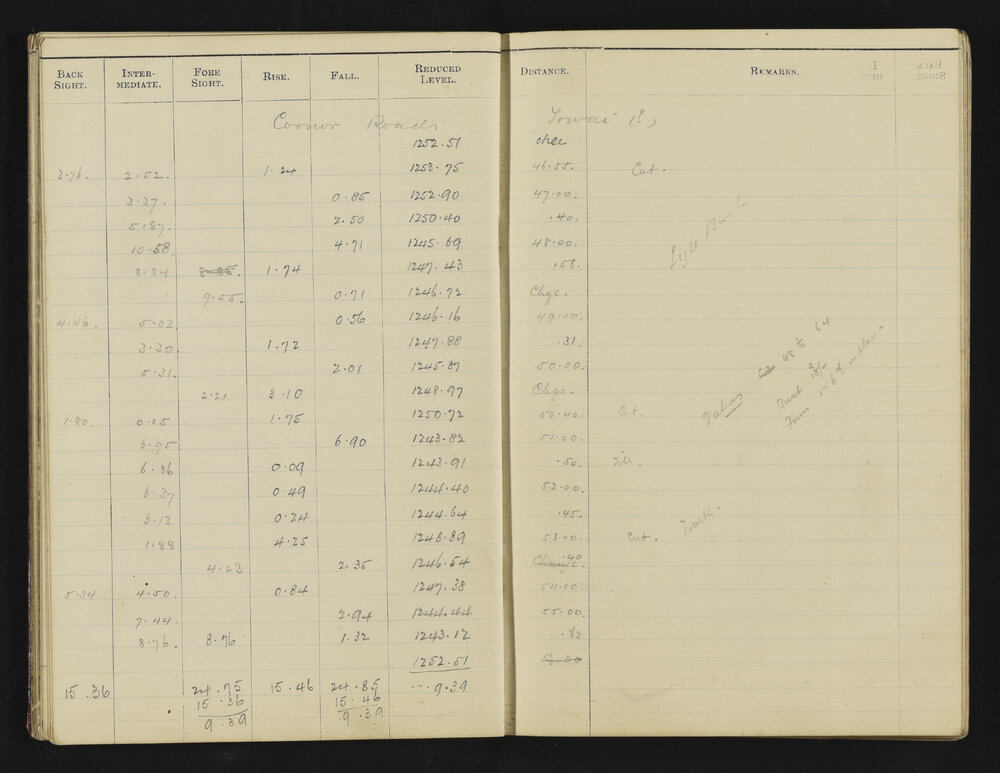 BACK SIGHT. INTER-MEDIATE. FORE SIGHT. RISE. FALL. REDUCED LEVEL. DISTANCE. REMARKS.
Coonor Roads
1252.51
3.76. 2.52. 1.24 1253.75 46.55. Cut.
3.37. 0.85 1252.90 47.00.
5.87. 2.50 1250.40 .40.
10.58. 4.71 1245.69 48.00.
8.84 8.85. 1.74 1247.43 .58.
9.55. 0.71 1246.72 Chge.
4.46. 5.02 0.56 1246.16 49.00.
3.30. 1.72 1247.88 .31.
5.31. 2.01 1245.87 50.00.
2.21 3.10 1248.97 Chge.
1.80. 0.05 1.75 1250.72 50.40. Cut.
6.95 6.90 1243.82 51.00.
6.86 0.09 1243.91 .50. Fill.
6.37 0.49 1244.40 52.00.
6.13 0.24 1244.64 .45.
1.88 4.25 1248.89 53.00. Cut. Track.
4.23 2.35 1246.54 Change. .40
5.34 4.50. 0.84 1247.38 54.00.
7.44. 2.94 1244.44 55.00.
8.76. 8.76 1.32 1243.12
1252.51
15.36 24.75 15.46 24.85 ...9.39
15.36 15.46
9.39 9.39
Values
48 to 64
Bush